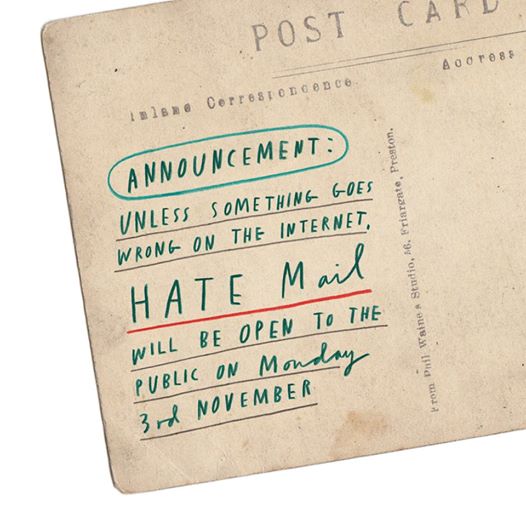 POST CARD
Inland Correspondence
Address
ANNOUNCEMENT:
UNLESS SOMETHING GOES
WRONG ON THE INTERNET,
HATE Mail
WILL BE OPEN TO THE
PUBLIC ON Monday
3rd NOVEMBER
From Phil Waine's Studio, 46, Friargate, Preston.